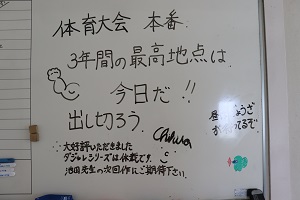 体育大会 本番
3年間の最高地点は
今日だ!!
出し切ろう。
大好評いただきました
ダジャレシリーズは休載です。
池田先生の次回作にご期待下さい。